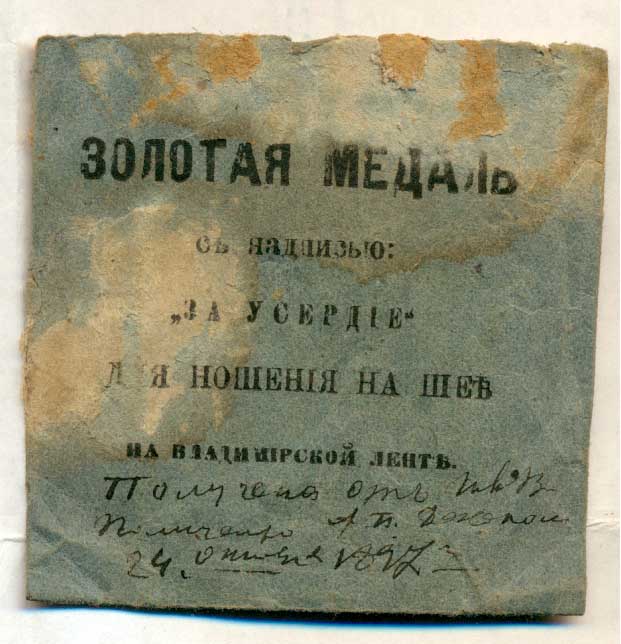 ЗОЛОТАЯ МЕДАЛЬ
съ надписью:
„ЗА УСЕРДІЕ“
ДЛЯ НОШЕНІЯ НА ШЕѢ
НА ВЛАДИМІРСКОЙ ЛЕНТѢ.
Получена отъ
24. 1897